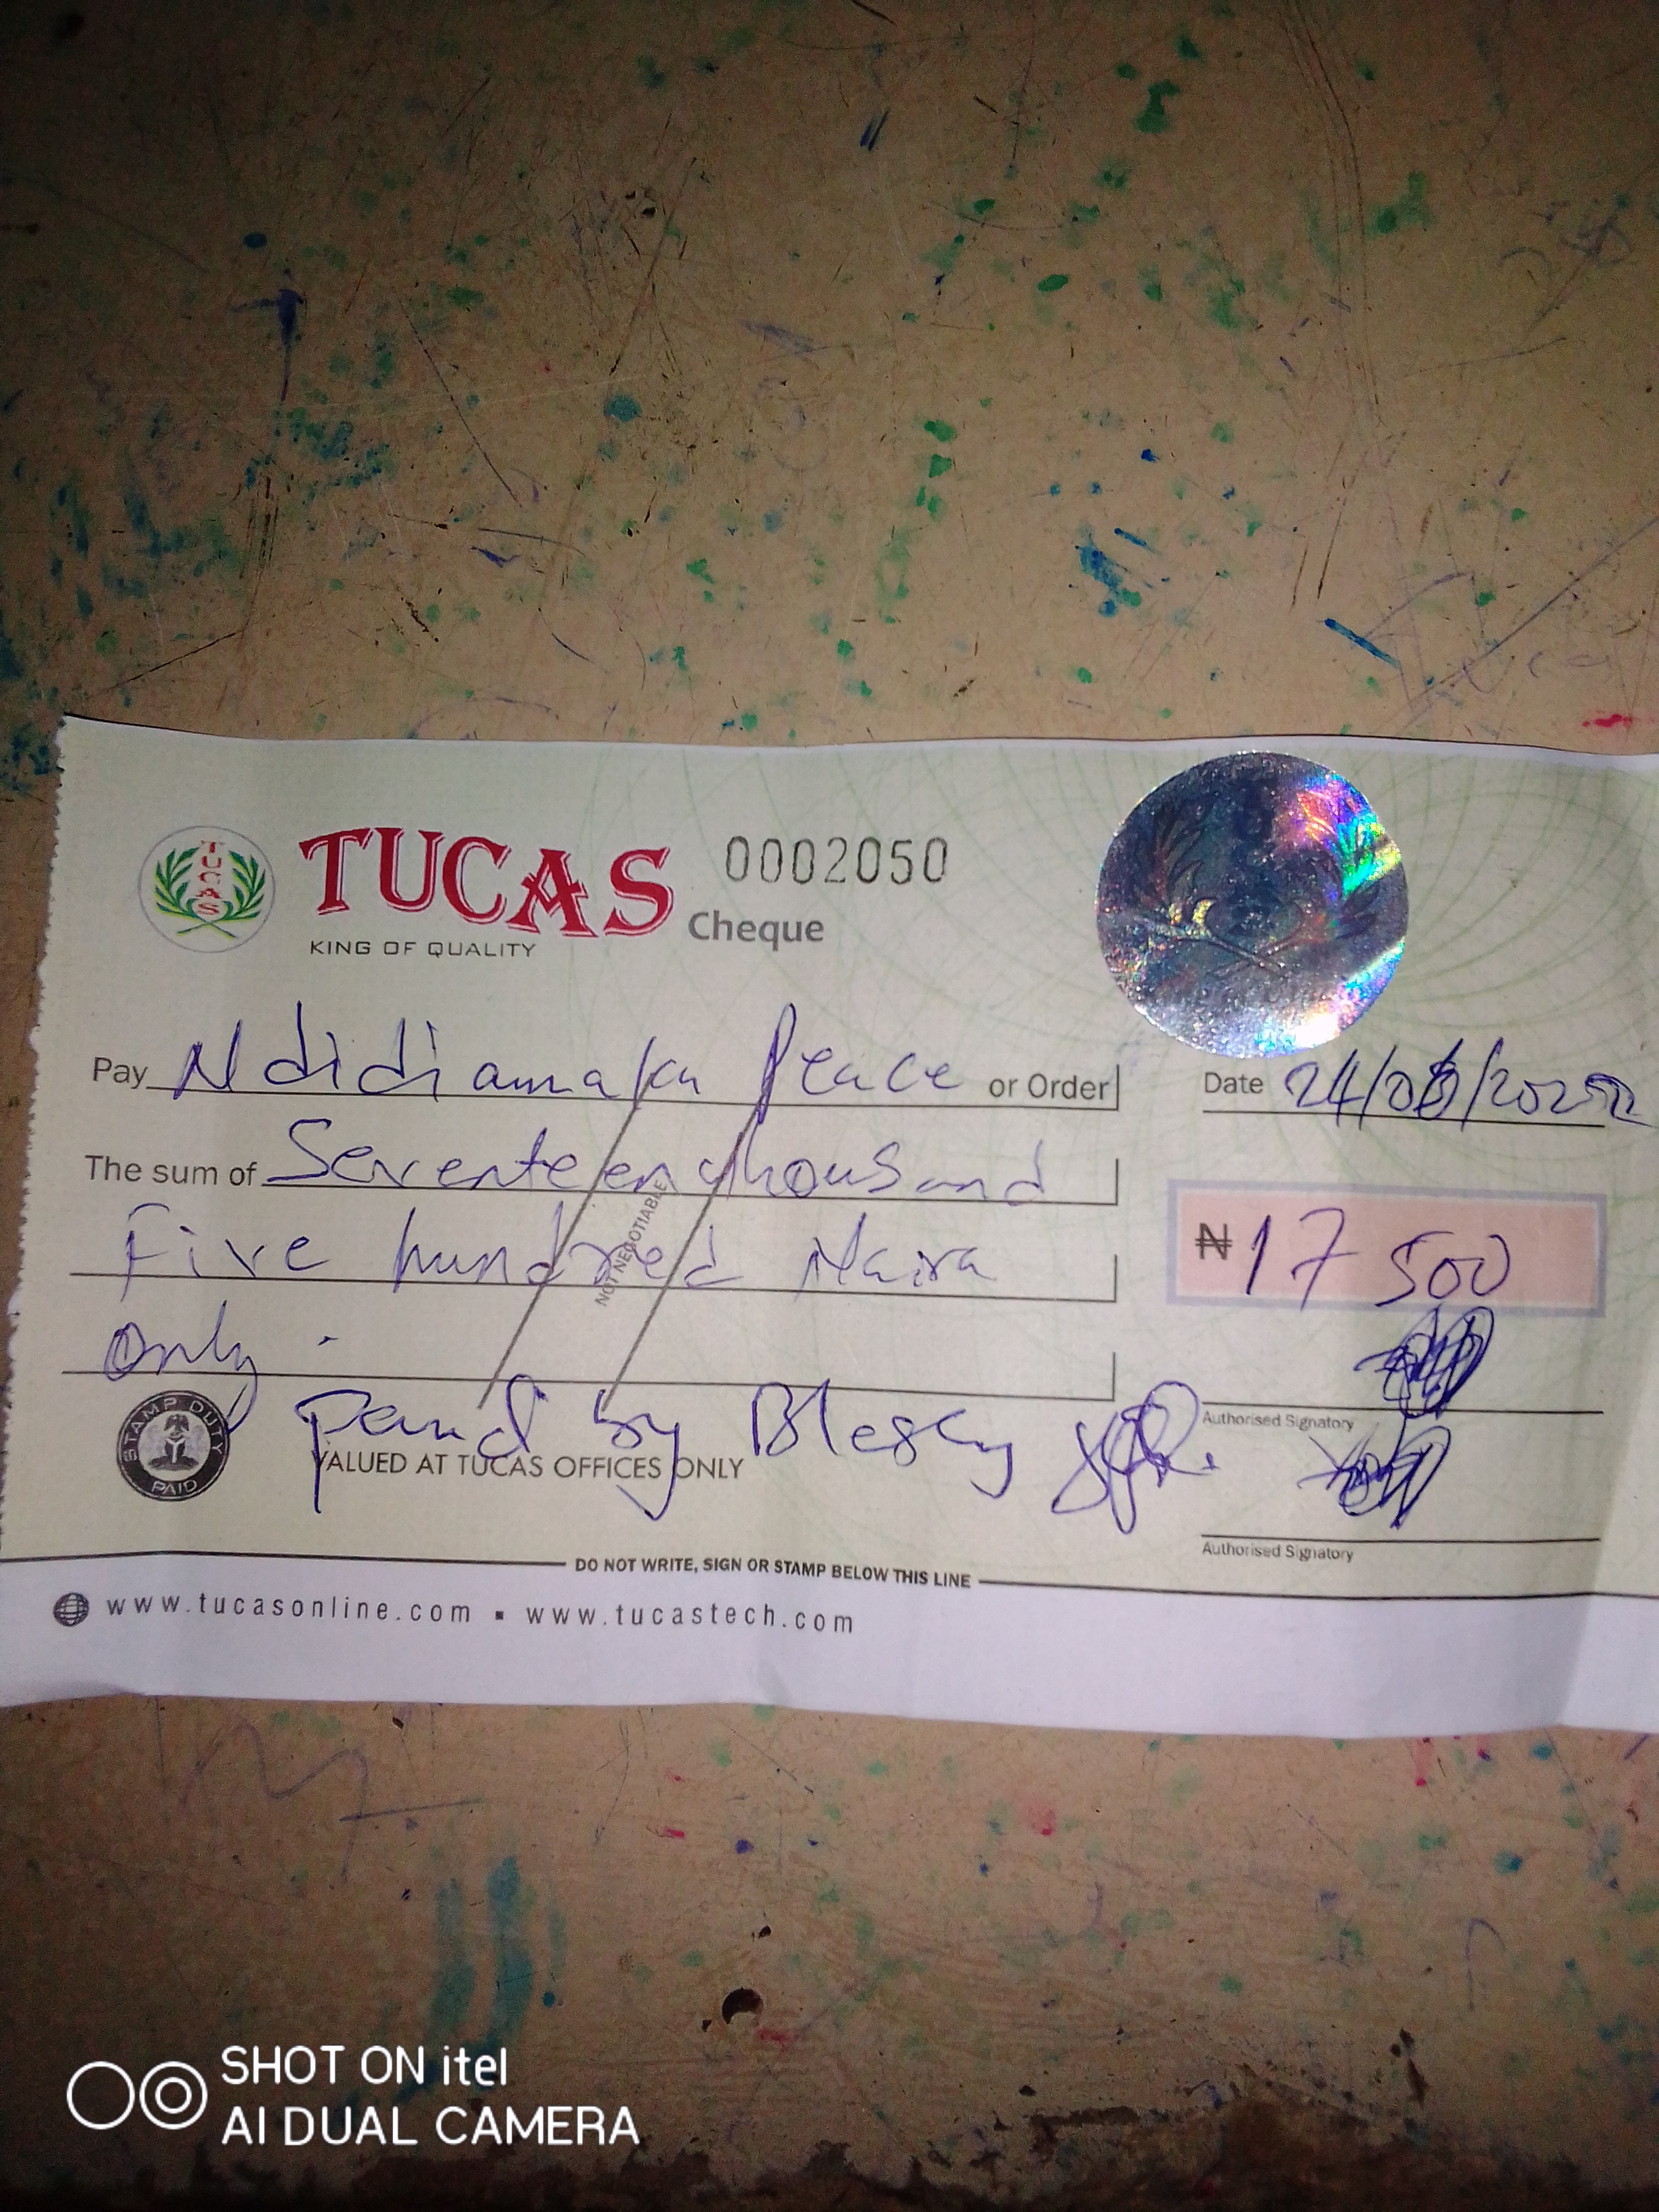 TUCAS
TUCAS 0002050
KING OF QUALITY Cheque
Pay Ndidiamaka Peace or Order Date 24/
The sum of Seventeen thousand
Five hundred Naira ₦17 500
NOT NEGOTIABLE
only.
STAMP DUTY PAID
by Blessing
Authorised Signatory
VALUED AT TUCAS OFFICES ONLY
Authorised Signatory
DO NOT WRITE, SIGN OR STAMP BELOW THIS LINE
www.tucasonline.com ▪ www.tucastech.com
SHOT ON itel
AI DUAL CAMERA